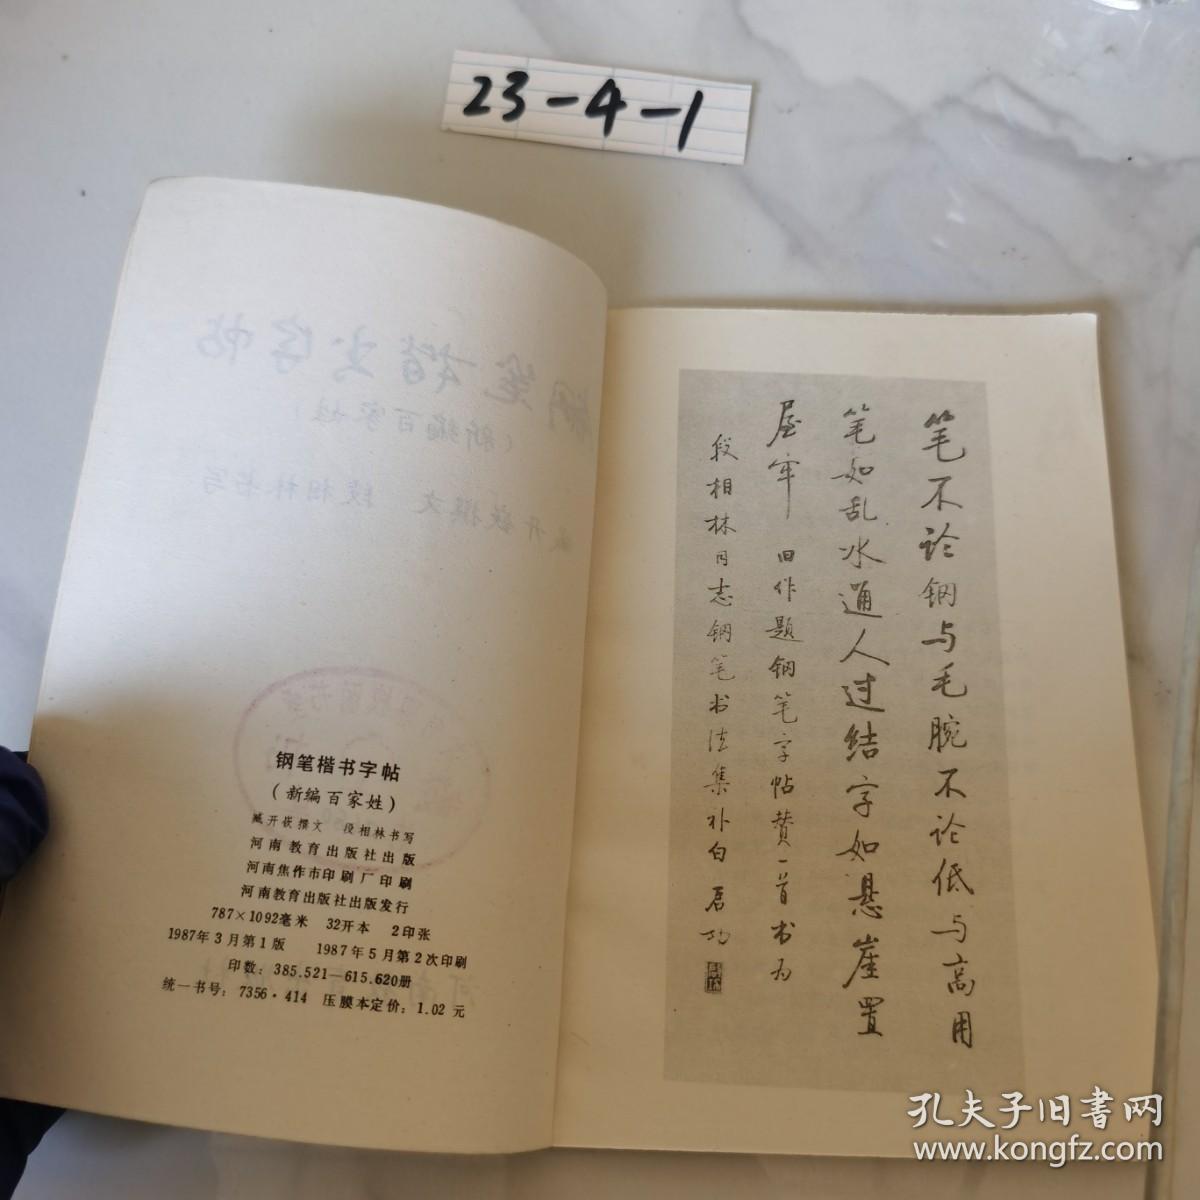 23-4-1
钢笔楷书字帖
(新编百家姓)
臧开嵚撰文 段相林书写
河南教育出版社出版
河南焦作市印刷厂印刷
河南教育出版社出版发行
787×1092毫米 32开本 2印张
1987年3月第1版 1987年5月第2次印刷
印数：385.521—615.620册
统一书号：7356·414 压膜本定价：1.02元
笔不论钢与毛腕不论低与高用
笔如乱水通人过结字如悬崖置
屋牢 旧作题钢笔字帖赞一首书为
段相林同志钢笔书法集补白 启功
孔夫子旧書网
www.kongfz.com